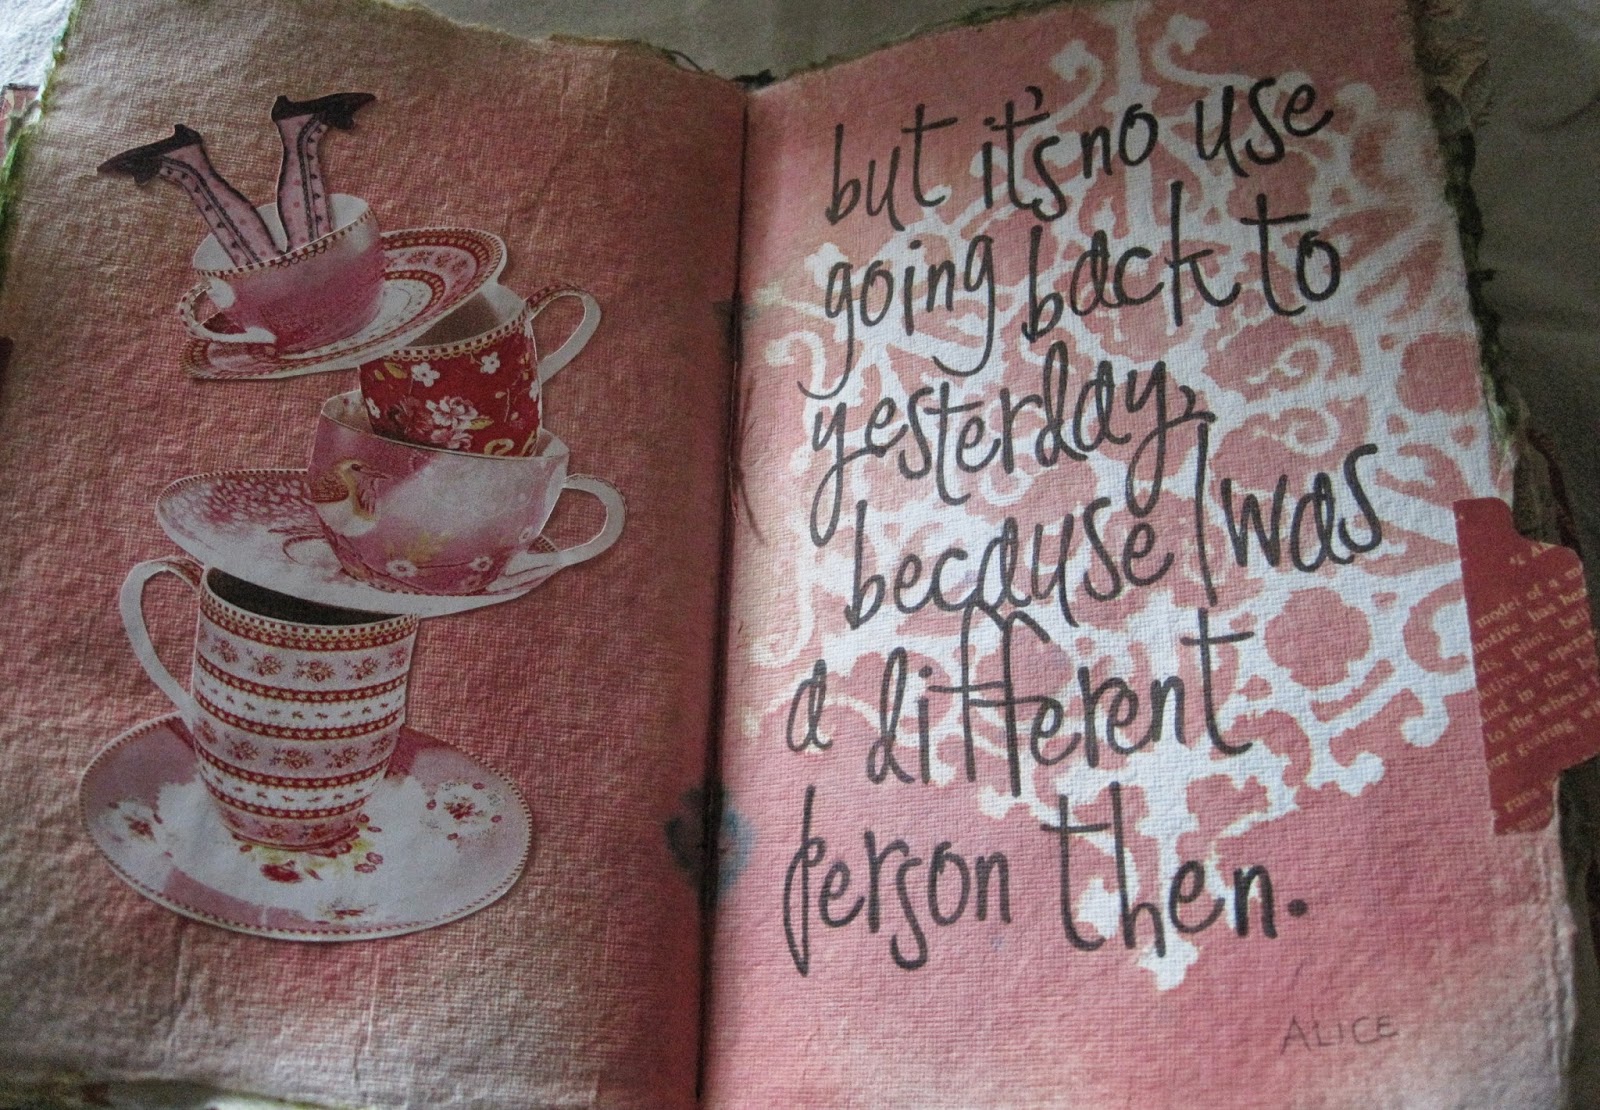 but it's no use
going back to
yesterday,
because I was
a different
person then.
ALICE
model of a
has
is
in the
to the wheels
gearing